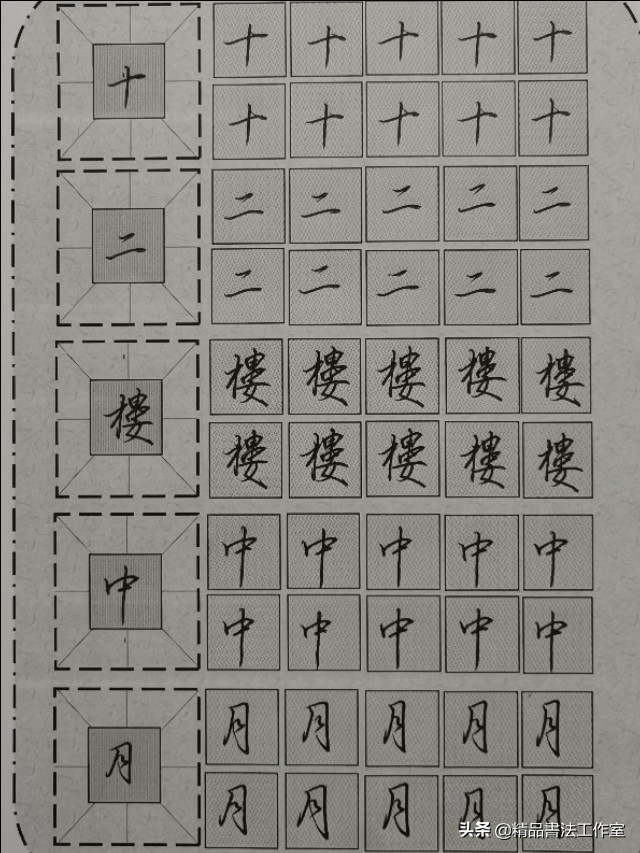 十 十 十 十 十 十
十 十 十 十 十
二 二 二 二 二 二
二 二 二 二 二
樓 樓 樓 樓 樓 樓
樓 樓 樓 樓 樓
中 中 中 中 中 中
中 中 中 中 中
月 月 月 月 月 月
月 月 月 月 月
头条 @精品書法工作室